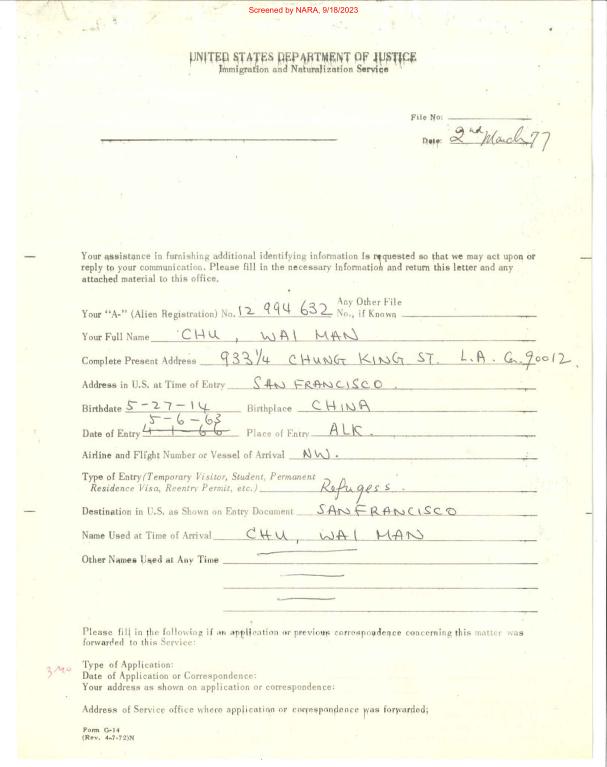 Screened by NARA, 9/18/2023
UNITED STATES DEPARTMENT OF JUSTICE
Immigration and Naturalization Service
File No:
Date: 2nd March 77
Your assistance in furnishing additional identifying information is requested so that we may act upon or
reply to your communication. Please fill in the necessary information and return this letter and any
attached material to this office.
Your "A-" (Alien Registration) No. 12 994 632 Any Other File No., if Known
Your Full Name CHU, WAI MAN
Complete Present Address 933 1/4 CHUNG KING ST. L.A. Ca. 90012
Address in U.S. at Time of Entry SAN FRANCISCO.
Birthdate 5-27-14 Birthplace CHINA
5-6-63
Date of Entry 4-1-66 Place of Entry ALK.
Airline and Flight Number or Vessel of Arrival NW.
Type of Entry (Temporary Visitor, Student, Permanent
Residence Visa, Reentry Permit, etc.) Refugess.
Destination in U.S. as Shown on Entry Document SAN FRANCISCO
Name Used at Time of Arrival CHU, WAI MAN
Other Names Used at Any Time
Please fill in the following if an application or previous correspondence concerning this matter was
forwarded to this Service:
Type of Application:
Date of Application or Correspondence:
Your address as shown on application or correspondence:
Address of Service office where application or correspondence was forwarded;
Form G-14
(Rev. 4-7-72)N